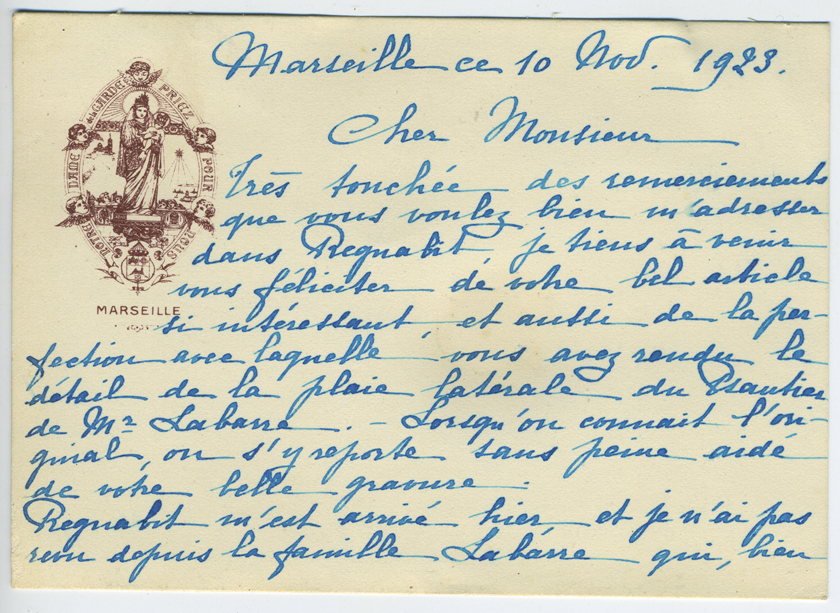 Marseille ce 10 Nov. 1923.
NOTRE DAME de la GARDE PRIEZ POUR NOUS
MARSEILLE
Cher Monsieur
Très touchée des remerciements
que vous voulez bien m'adresser
dans Regnabit, je tiens à venir
vous féliciter de votre bel article
si intéressant, et aussi de la per-
fection avec laquelle, vous avez rendu le
détail de la plaie latérale du Psautier
de Mr Labarre. - Lorsqu'on connait l'ori-
ginal, on s'y reporte sans peine aidé
de votre belle gravure.
Regnabit m'est arrivé hier, et je n'ai pas
revu depuis la famille Labarre qui, bien